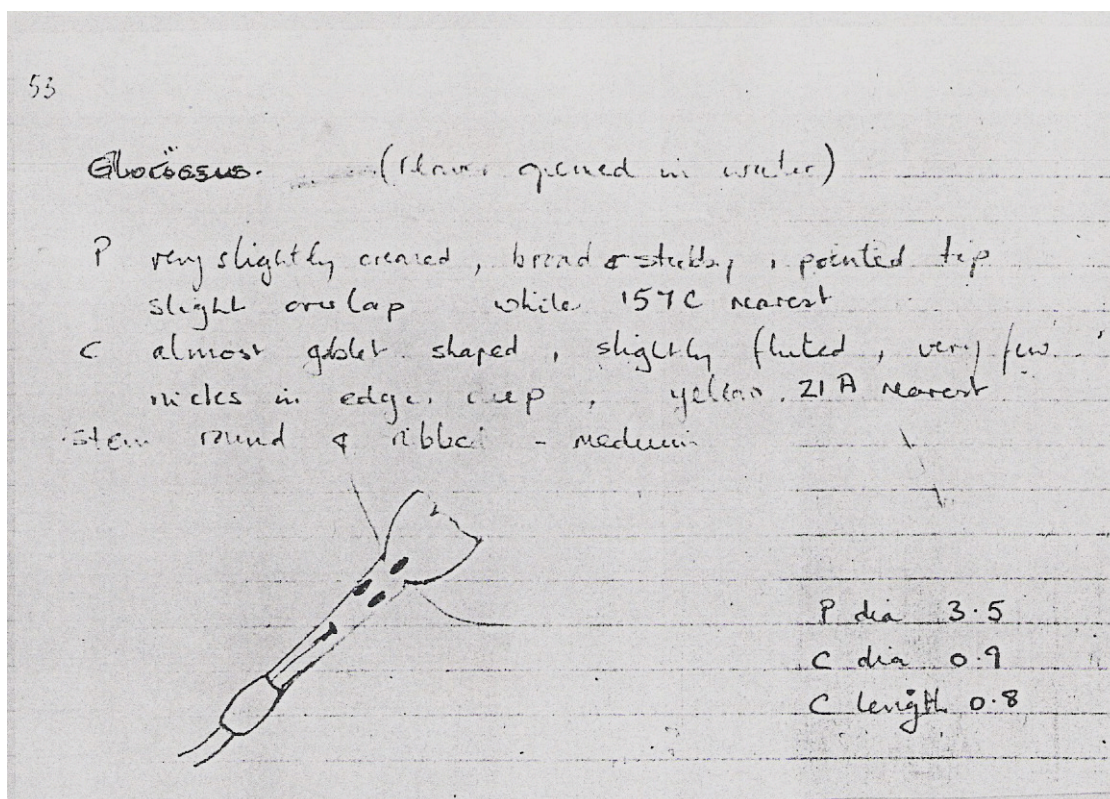 53
(flower opened in water)
P very slightly creased, broad & stubby, pointed tip
slight overlap white 157C nearest
C almost goblet shaped, slightly fluted, very few
nicks in edge, deep, yellow. 21A nearest
stem round & ribbed - medium
P dia 3.5
C dia 0.9
C length 0.8